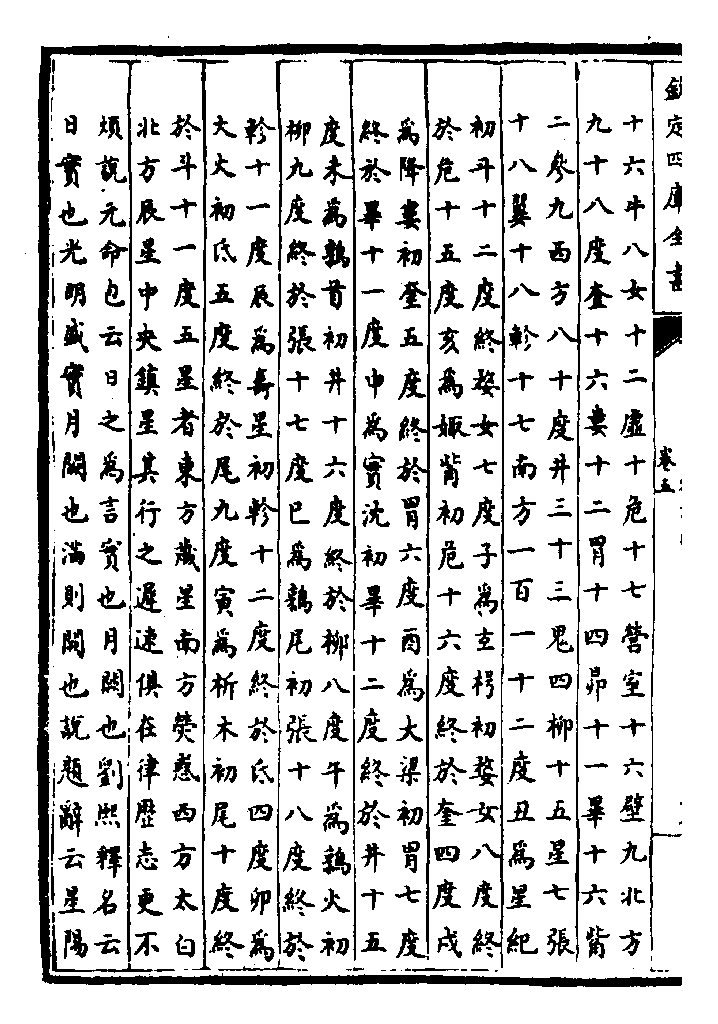 欽定四庫全書
卷五
十六牛八女十二虛十危十七營室十六壁九北方
九十八度奎十六婁十二胃十四昴十一畢十六觜
二參九西方八十度井三十三鬼四柳十五星七張
十八翼十八軫十七南方一百一十二度丑為星紀
初斗十二度終婺女七度子為玄枵初婺女八度終
於危十五度亥為娵觜初危十六度終於奎四度戌
為降婁初奎五度終於胃六度酉為大梁初胃七度
終於畢十一度申為實沈初畢十二度終於井十五
度未為鶉首初井十六度終於柳八度午為鶉火初
柳九度終於張十七度巳為鶉尾初張十八度終於
軫十一度辰為壽星初軫十二度終於氐四度卯為
大火初氐五度終於尾九度寅為析木初尾十度終
於斗十一度五星者東方歲星南方熒惑西方太白
北方辰星中央鎮星其行之遲速俱在律歷志更不
煩說元命包云日之為言實也月闕也劉熙釋名云
日實也光明盛實月闕也滿則闕也說題辭云星陽